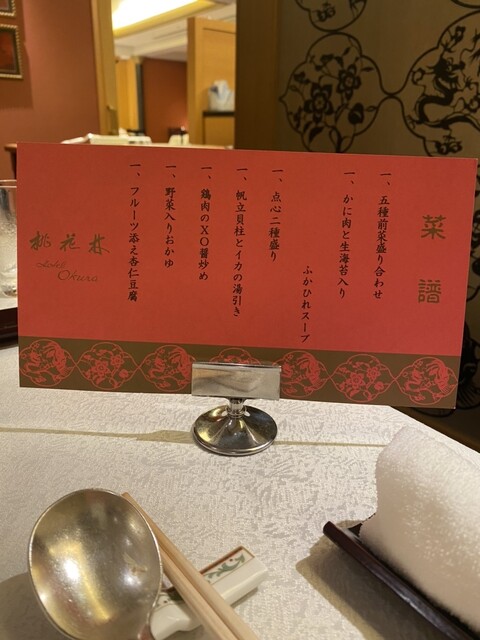 菜譜
一、五種前菜盛り合わせ
一、かに肉と生海苔入り
ふかひれスープ
一、点心二種盛り
一、帆立貝柱とイカの湯引き
一、鶏肉のXO醤炒め
一、野菜入りおかゆ
一、フルーツ添え杏仁豆腐
桃花林
Hotel
Okura